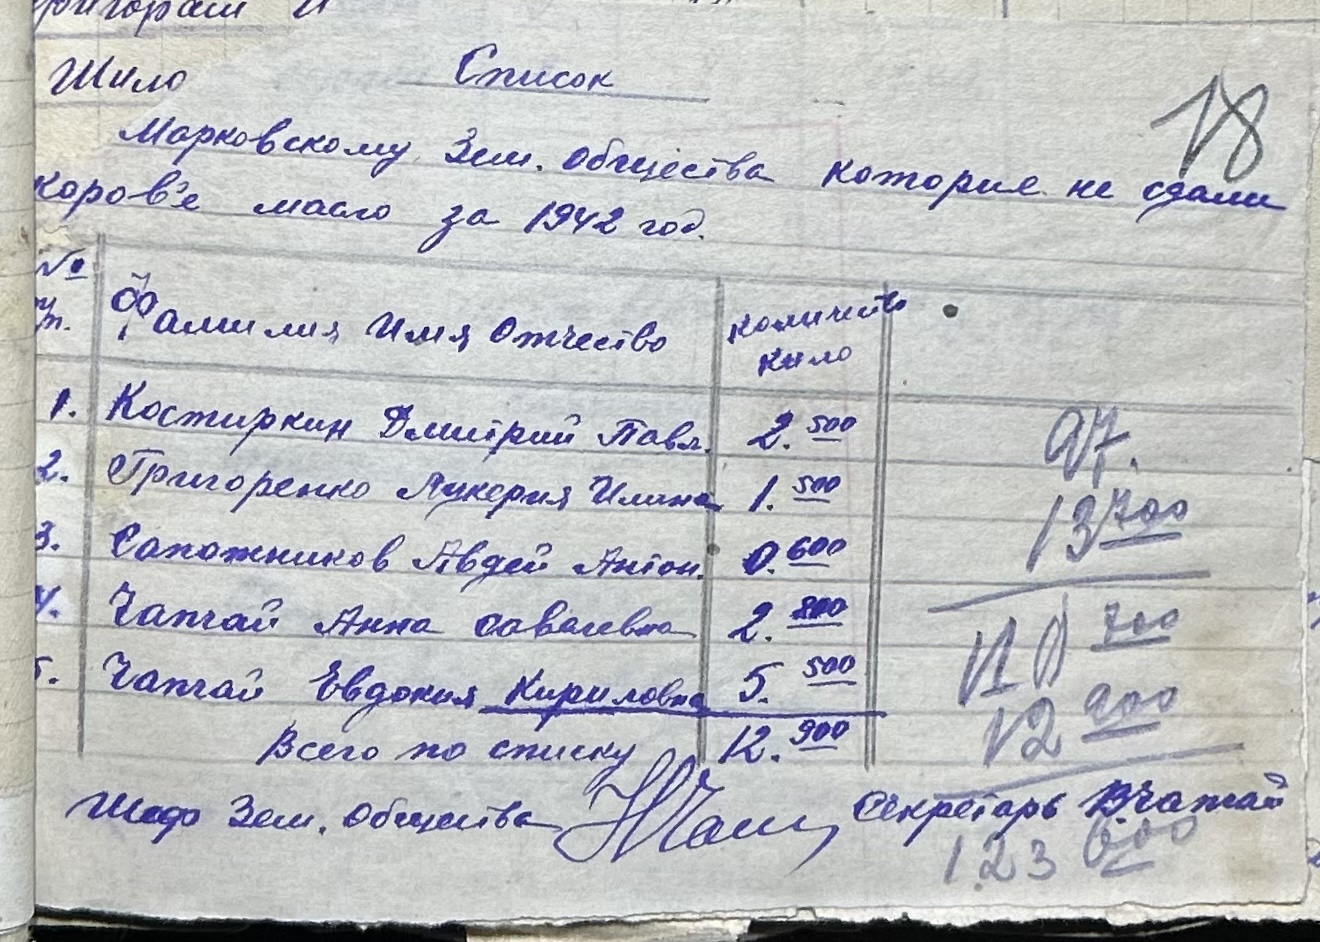 Шило
Список
18
Марковскому Зем. общества которие не сдали
коров'е масло за 1942 год.
№ п. Фамилия Имя Отчество количество кило
1. Костиркин Дмитрий Павл. 2.500
2. Григоренко Лукерия Илина 1.500
3. Сапожников Авдей Антон. 0.600
4. Чапчай Анна Савелевна 2.800
5. Чапчай Евдокия Кириловна 5.500
Всего по списку 12.900
97.
13 700
110 700
12 900
123 600
Шеф Зем. общества Секретарь В.Чапчай